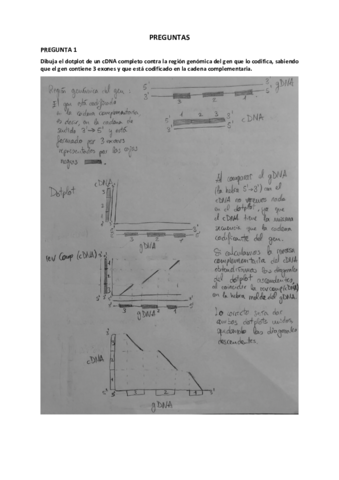 PREGUNTAS
PREGUNTA 1
Dibuja el dotplot de un cDNA completo contra la región genómica del gen que lo codifica, sabiendo
que el gen contiene 3 exones y que está codificado en la cadena complementaria.
Región genómica del gen:
El gen está codificado
en la cadena complementaria
es decir, en la cadena no
3'→5' y está
formado por 3 exones
representados por las cajas
negras
5' 3'
3' 5'
3 2 1
gDNA
cDNA
Dotplot
cDNA
gDNA
Al comparar el gDNA
con el
cDNA no veremos nada
en el dotplot, ya que
el cDNA tiene la misma
secuencia que la cadena
codificante del gen.
Si calculamos la reversa
complementaria del cDNA
obtendríamos las diagonales
del dotplot
en la hebra del gDNA.
Inv Comp (cDNA)
gDNA
Lo correcto sería dar
ambos dotplots unidos
quedando las diagonales
descendentes.
cDNA
gDNA